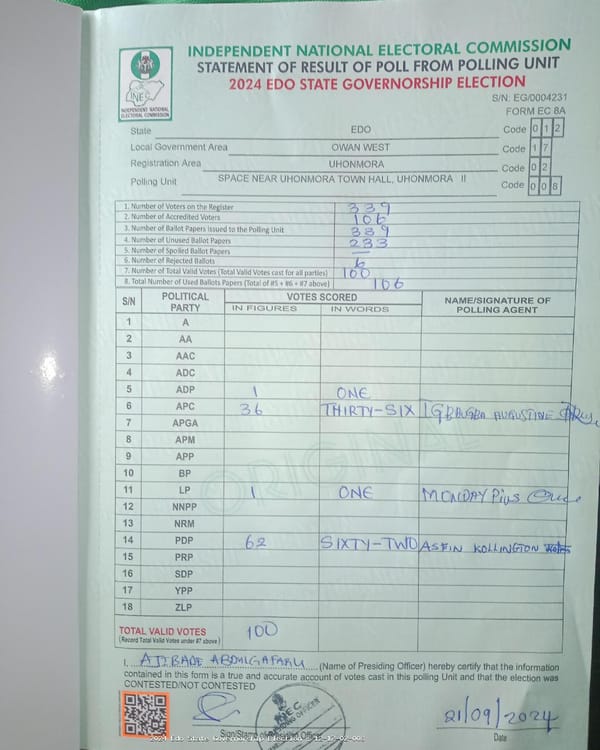 INDEPENDENT NATIONAL ELECTORAL COMMISSION
STATEMENT OF RESULT OF POLL FROM POLLING UNIT
2024 EDO STATE GOVERNORSHIP ELECTION
INEC
INDEPENDENT NATIONAL
ELECTORAL COMMISSION
S/N: EG/0004231
FORM EC 8A
State EDO Code 0 1 2
Local Government Area OWAN WEST Code 1 7
Registration Area UHONMORA Code 0 2
Polling Unit SPACE NEAR UHONMORA TOWN HALL, UHONMORA II Code 0 0 8
1. Number of Voters on the Register 339
2. Number of Accredited Voters 106
3. Number of Ballot Papers issued to the Polling Unit 339
4. Number of Unused Ballot Papers 233
5. Number of Spoiled Ballot Papers —
6. Number of Rejected Ballots 6
7. Number of Total Valid Votes (Total Valid Votes cast for all parties) 100
8. Total Number of Used Ballots Papers (Total of #5 + #6 + #7 above) 106
S/N POLITICAL PARTY VOTES SCORED NAME/SIGNATURE OF POLLING AGENT
IN FIGURES IN WORDS
1 A
2 AA
3 AAC
4 ADC
5 ADP 1 ONE
6 APC 36 THIRTY-SIX IGBAUGBA AUGUSTINE
7 APGA
8 APM
9 APP
10 BP
11 LP 1 ONE MONDAY Pius
12 NNPP
13 NRM
14 PDP 62 SIXTY-TWO ASEIN KOLLINGTON
15 PRP
16 SDP
17 YPP
18 ZLP
ORIGINAL
TOTAL VALID VOTES 100
(Record Total Valid Votes under #7 above)
I. AJIBADE ABDULGAFARU (Name of Presiding Officer) hereby certify that the information
contained in this form is a true and accurate account of votes cast in this polling Unit and that the election was
CONTESTED/NOT CONTESTED
INEC
21/09/2024
Date